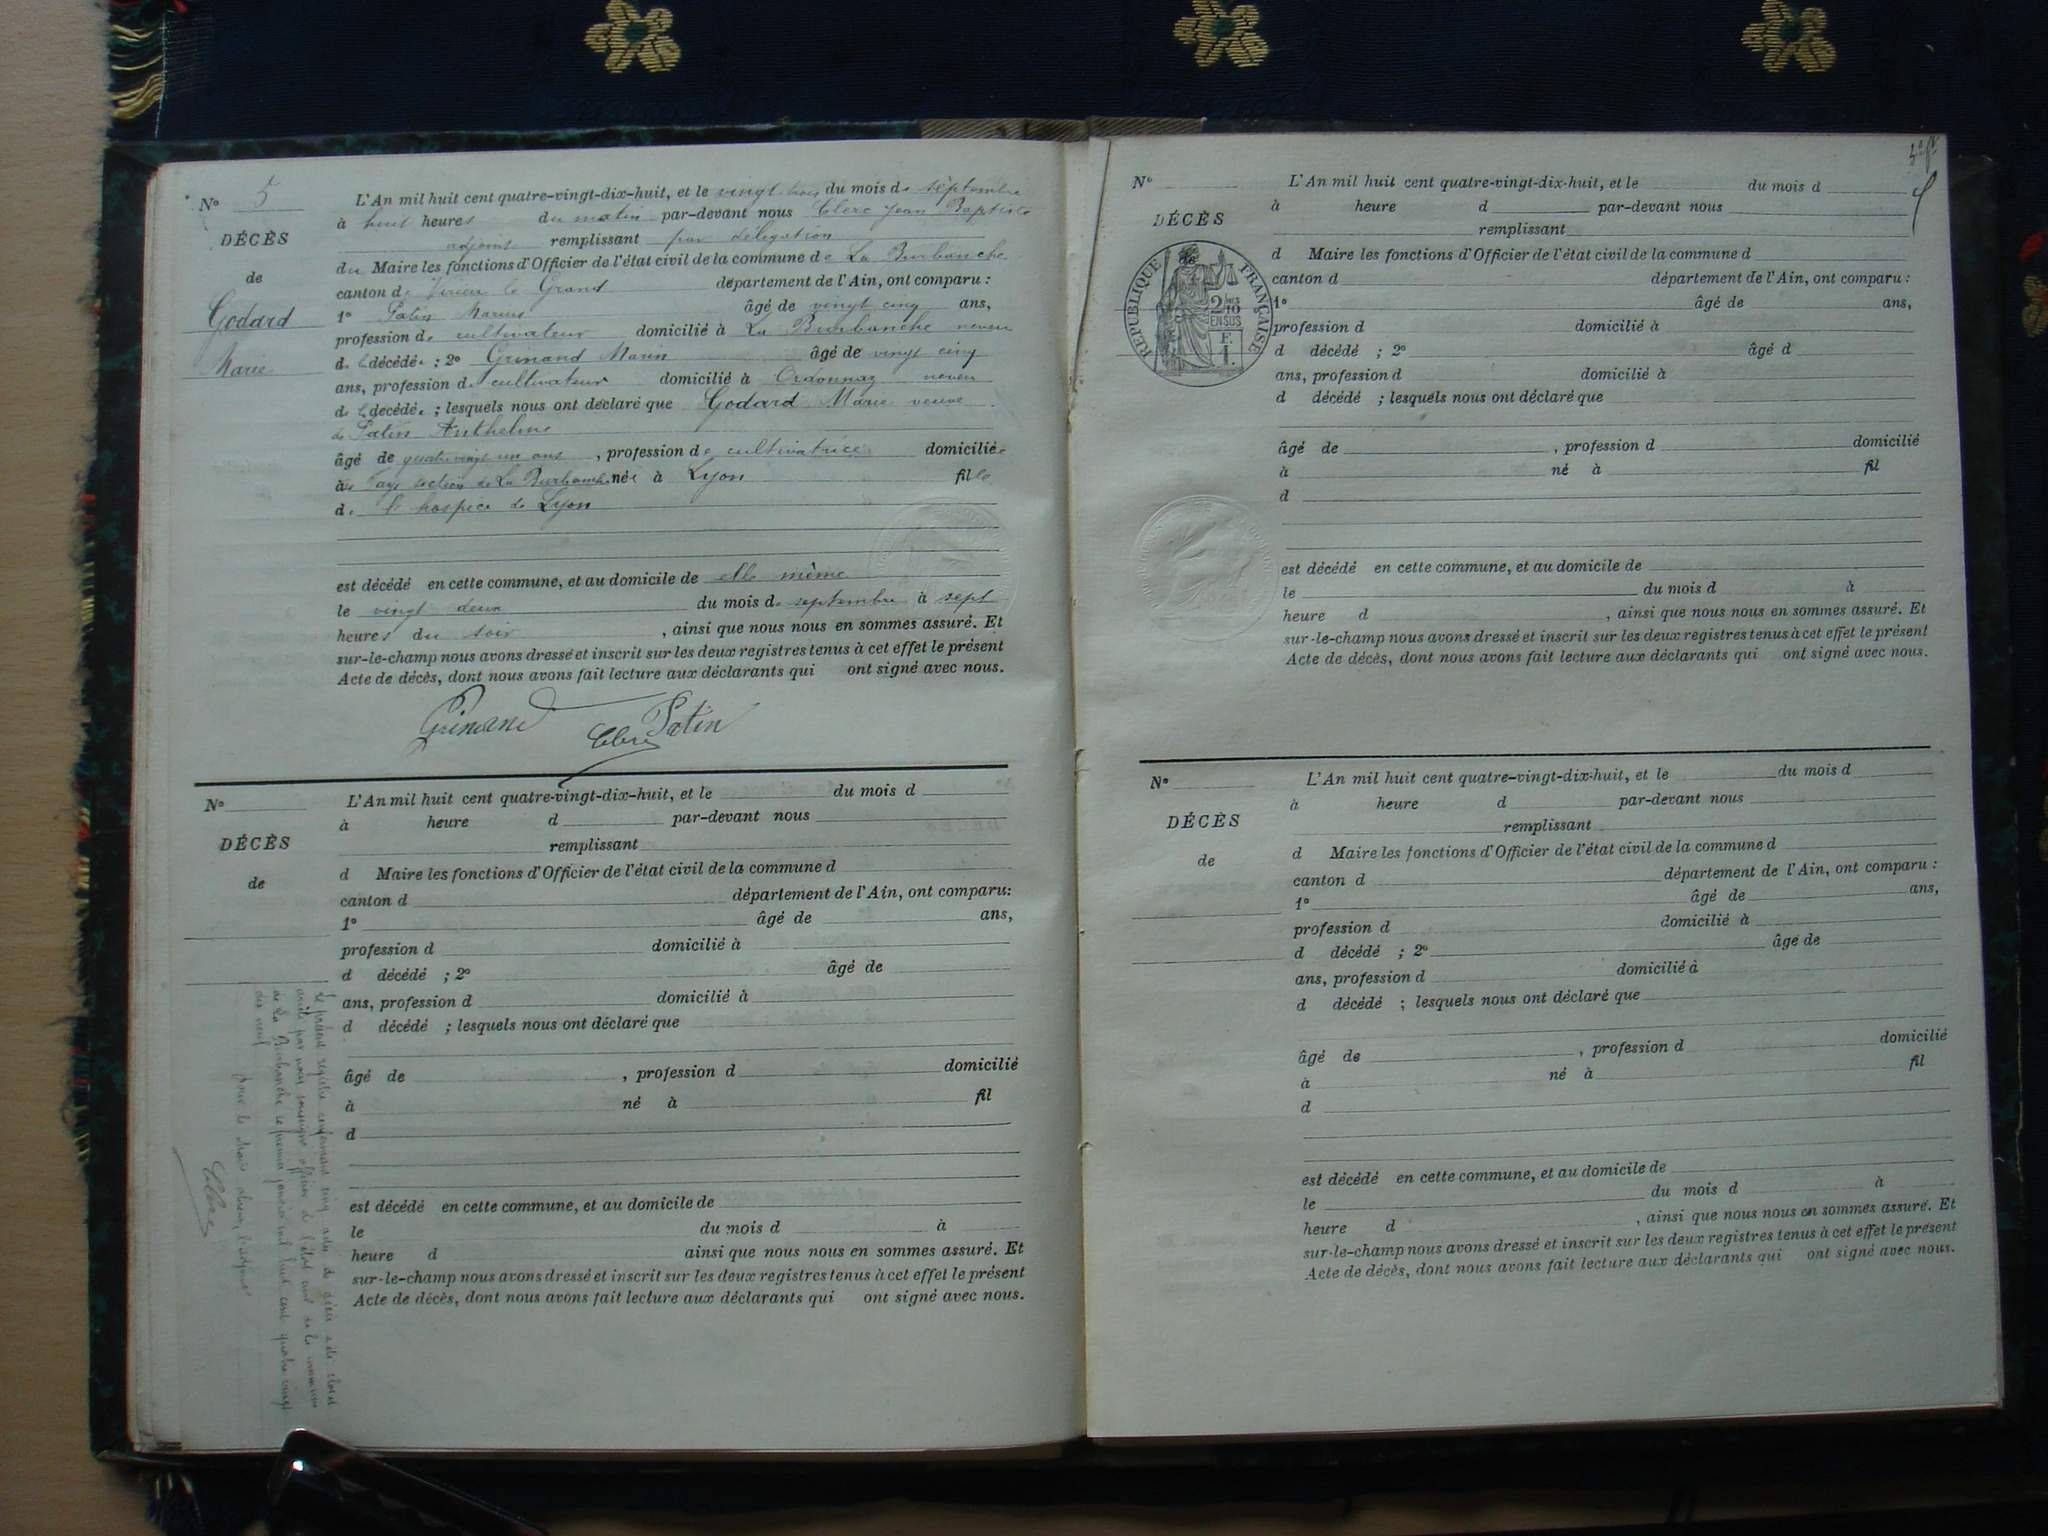 N° 5
DÉCÈS
de
Godard
Marie
L'An mil huit cent quatre-vingt-dix-huit, et le vingt trois du mois de septembre
à huit heures du matin par-devant nous Clerc Jean Baptiste
adjoint remplissant par délégation
du Maire les fonctions d'Officier de l'état civil de la commune de La Burbanche
canton de Virieu le Grand département de l'Ain, ont comparu :
1° Patin Marius âgé de vingt cinq ans,
profession de cultivateur domicilié à La Burbanche neveu
de la décédée ; 2° Grinand Marin âgé de vingt cinq
ans, profession de cultivateur domicilié à Ordonnaz neveu
de la décédée ; lesquels nous ont déclaré que Godard Marie veuve
de Patin Anthelme
âgé de quatre vingt un ans , profession de cultivatrice domiciliée
à section de La Burbanche née à Lyon fille
de l'hospice de Lyon
est décédé en cette commune, et au domicile de elle même
le vingt deux du mois de septembre à sept
heures du soir , ainsi que nous nous en sommes assuré. Et
sur-le-champ nous avons dressé et inscrit sur les deux registres tenus à cet effet le présent
Acte de décès, dont nous avons fait lecture aux déclarants qui ont signé avec nous.
Grinand Clerc Patin
N°
DÉCÈS
de
L'An mil huit cent quatre-vingt-dix-huit, et le du mois d
à heure d par-devant nous
remplissant
d Maire les fonctions d'Officier de l'état civil de la commune d
canton d département de l'Ain, ont comparu:
1° âgé de ans,
profession d domicilié à
d décédé ; 2° âgé de
ans, profession d domicilié à
d décédé ; lesquels nous ont déclaré que
âgé de , profession d domicilié
à né à fil
d
est décédé en cette commune, et au domicile de
le du mois d à
heure d ainsi que nous nous en sommes assuré. Et
sur-le-champ nous avons dressé et inscrit sur les deux registres tenus à cet effet le présent
Acte de décès, dont nous avons fait lecture aux déclarants qui ont signé avec nous.
Le présent registre renfermant cinq actes de décès a été clos et
arrêté par nous soussigné officier de l'état civil de la commune
de La Burbanche le premier janvier mil huit cent quatre vingt
dix neuf
pour le Maire l'adjoint
Clerc
N°
DÉCÈS
RÉPUBLIQUE FRANÇAISE
2/10
EN SUS
F.
1.
L'An mil huit cent quatre-vingt-dix-huit, et le du mois d
à heure d par-devant nous
remplissant
d Maire les fonctions d'Officier de l'état civil de la commune d
canton d département de l'Ain, ont comparu :
1° âgé de ans,
profession d domicilié à
d décédé ; 2° âgé d
ans, profession d domicilié à
d décédé ; lesquels nous ont déclaré que
âgé de , profession d domicilié
à né à fil
d
est décédé en cette commune, et au domicile de
le du mois d à
heure d , ainsi que nous nous en sommes assuré. Et
sur-le-champ nous avons dressé et inscrit sur les deux registres tenus à cet effet le présent
Acte de décès, dont nous avons fait lecture aux déclarants qui ont signé avec nous.
N°
DÉCÈS
de
L'An mil huit cent quatre-vingt-dix-huit, et le du mois d
à heure d par-devant nous
remplissant
d Maire les fonctions d'Officier de l'état civil de la commune d
canton d département de l'Ain, ont comparu :
1° âgé de ans,
profession d domicilié à
d décédé ; 2° âgé de
ans, profession d domicilié à
d décédé ; lesquels nous ont déclaré que
âgé de , profession d domicilié
à né à fil
d
est décédé en cette commune, et au domicile de
le du mois d à
heure d , ainsi que nous nous en sommes assuré. Et
sur-le-champ nous avons dressé et inscrit sur les deux registres tenus à cet effet le présent
Acte de décès, dont nous avons fait lecture aux déclarants qui ont signé avec nous.